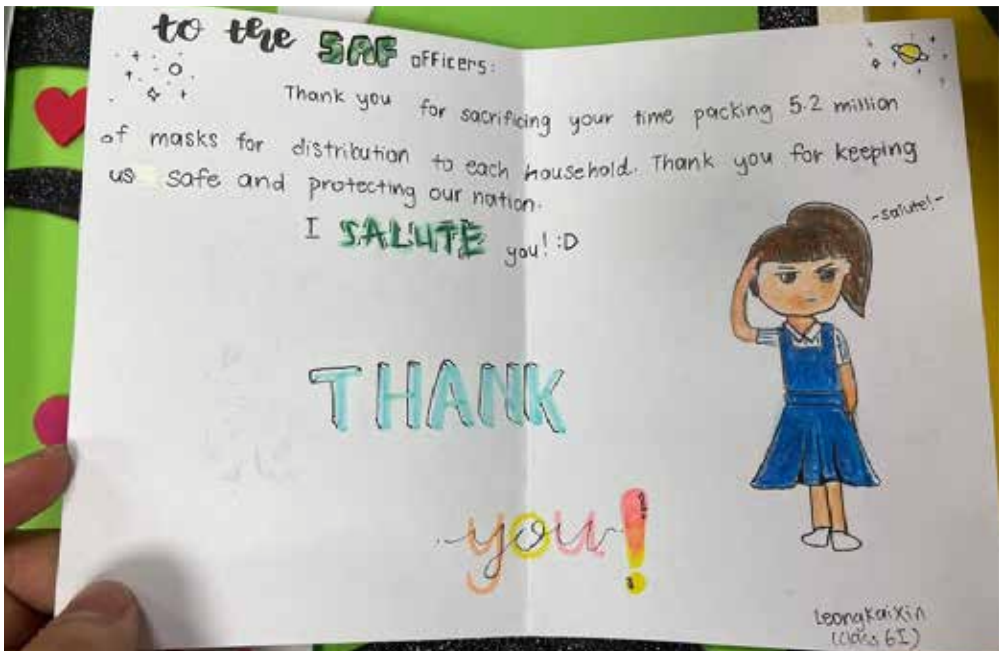 to the SAF officers:
Thank you for sacrificing your time packing 5.2 million
of masks for distribution to each household. Thank you for keeping
us safe and protecting our nation.
I SALUTE you! :D
-salute!-
THANK
you!
Leong Kai Xin
(Class 6I)